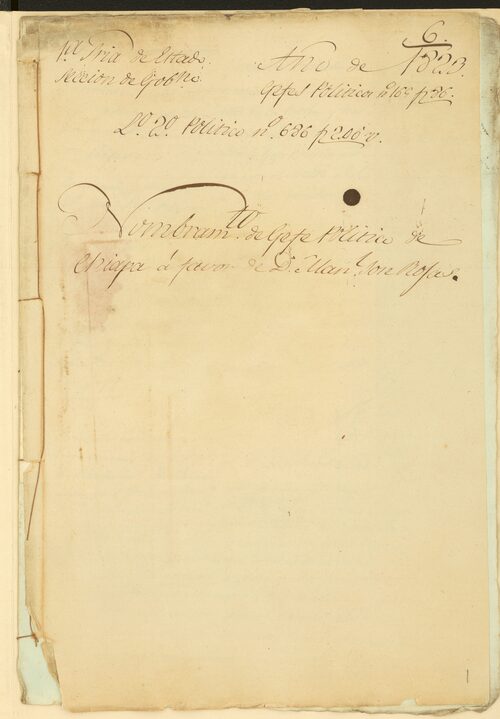 6.
1.ª Sria de Estado.
Seccion de Gobno
Año de 1823.
Gefes Politicos nº 16 p 36.
Lº 2º Politico nº 636 p 206 v.
Nombramto de Gefe Politico de
Chiapa á favor de Dn Manl Jose Rojas.